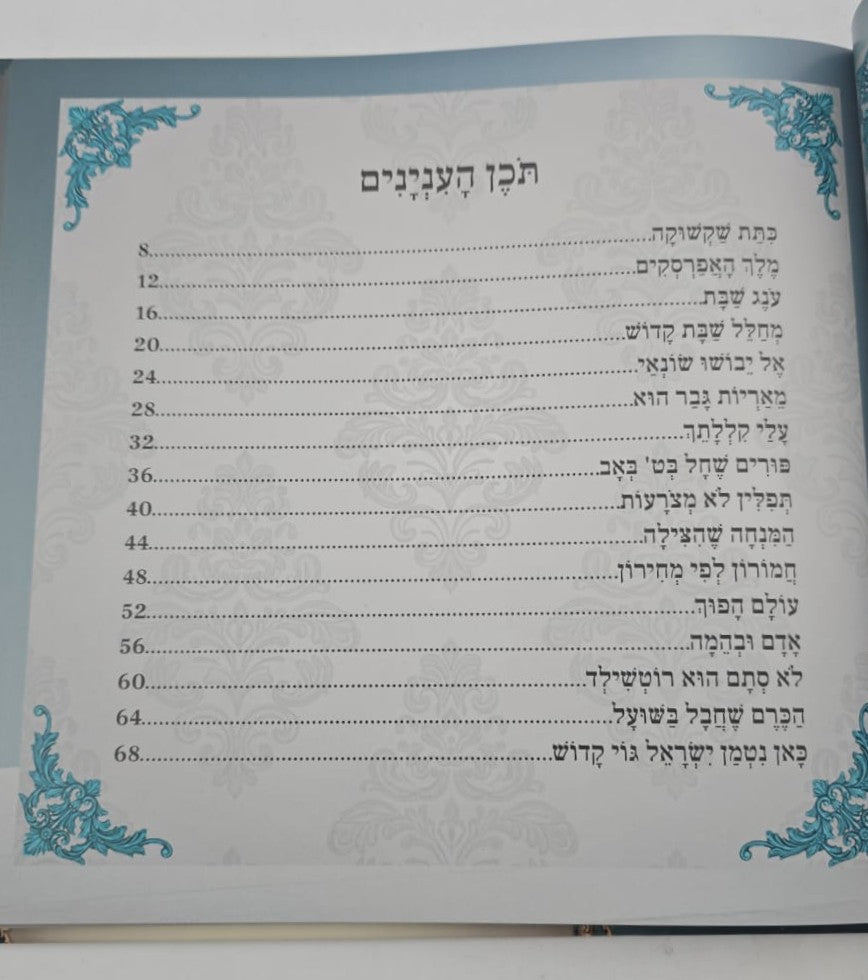 תֹּכֶן הָעִנְיָנִים
כִּתַּת שַׁקְשׁוּקָה........8
מֶלֶךְ הָאֲפַרְסְקִים........12
עֹנֶג שַׁבָּת........16
מְחַלֵּל שַׁבָּת קָדוֹשׁ........20
אֶל יֵבוֹשׁוּ שׂוֹנְאַי........24
מֵאַרְיוֹת גָּבַר הוּא........28
עָלַי קִלְלָתֵךְ........32
פּוּרִים שֶׁחָל בְּט' בְּאָב........36
תְּפִלִּין לֹא מְצֹרָעוֹת........40
הַמִּנְחָה שֶׁהִצִּילָה........44
חֲמוֹרוֹן לְפִי מְחִירוֹן........48
עוֹלָם הָפוּךְ........52
אָדָם וּבְהֵמָה........56
לֹא סְתָם הוּא רוֹטְשִׁילְד........60
הַכֶּרֶם שֶׁחֲבָל בַּשּׁוּעָל........64
כָּאן נִטְמַן יִשְׂרָאֵל גּוֹי קָדוֹשׁ........68